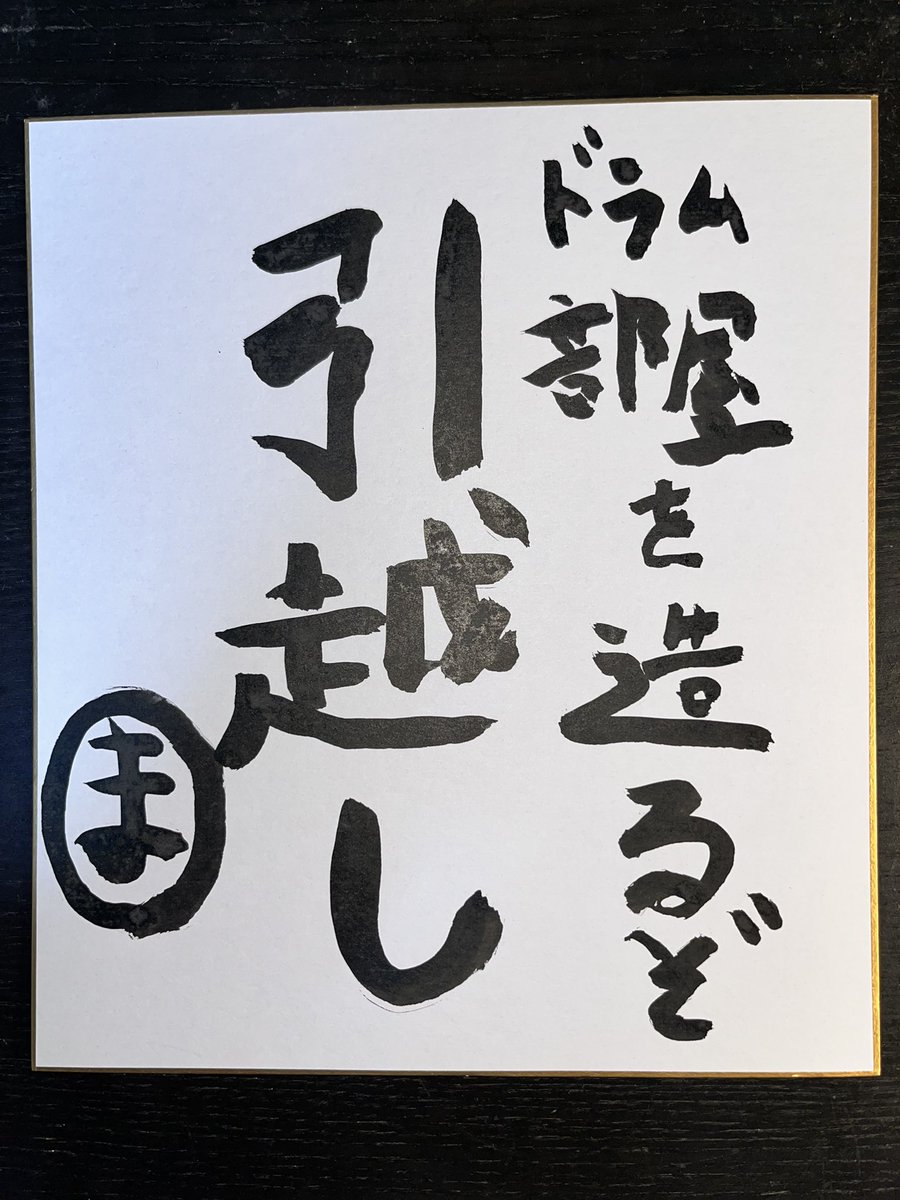 ドラム
部屋を造るぞ
引越し
ま